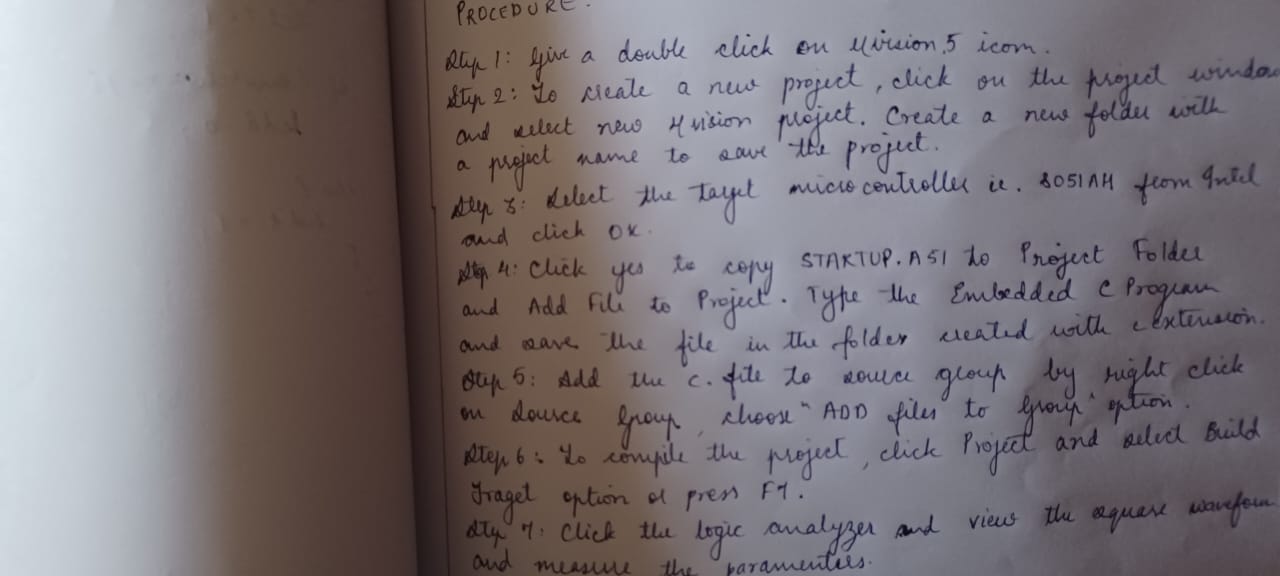 PROCEDURE.
Step 1: Give a double click on μvision.5 icom.
Step 2: To create a new project, click on the project window
and select new μvision project. Create a new folder with
a project name to save the project.
Step 3: Select the target microcontroller ie. 8051AH from Intel
and click OK.
Step 4: Click yes to copy STARTUP.A51 to Project Folder
and Add File to Project. Type the Embedded C Program
and save the file in the folder created with c extension.
Step 5: Add the c. file to source group by right click
on Source Group, choose "ADD files to Group" option.
Step 6: To compile the project, click Project and select Build
Traget option or press F7.
Step 7: Click the logic analyzer and view the square waveform
and measure the paramenters.